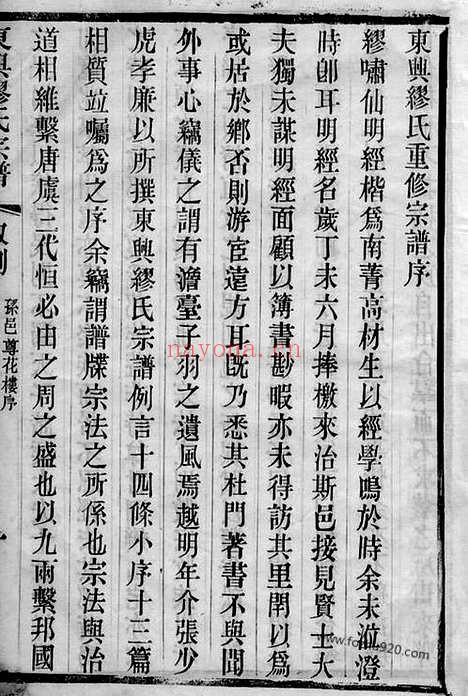 東興繆氏重修宗譜序
繆嘯仙明經楷爲南菁高材生以經學鳴於時余未涖澄
時卽耳明經名歲丁未六月捧檄來治斯邑接見賢士大
夫獨未謀明經面顧以簿書尠暇亦未得訪其里閈以爲
或居於鄉否則游宦遠方耳旣乃悉其杜門著書不與聞
外事心竊儀之謂有澹臺子羽之遺風焉越明年介張少
虎孝廉以所撰東興繆氏宗譜例言十四條小序十三篇
相質竝囑爲之序余竊謂譜牒宗法之所係也宗法與治
道相維繫唐虞三代恒必由之周之盛也以九兩繫邦國
東興繆氏宗譜
孫邑尊花樓序
nayona.cn
www.foxiu920.com